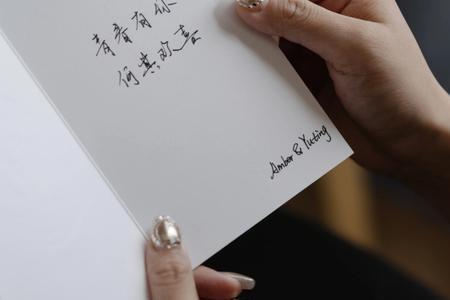 青春有你
何其欢喜
Amber & Yuting